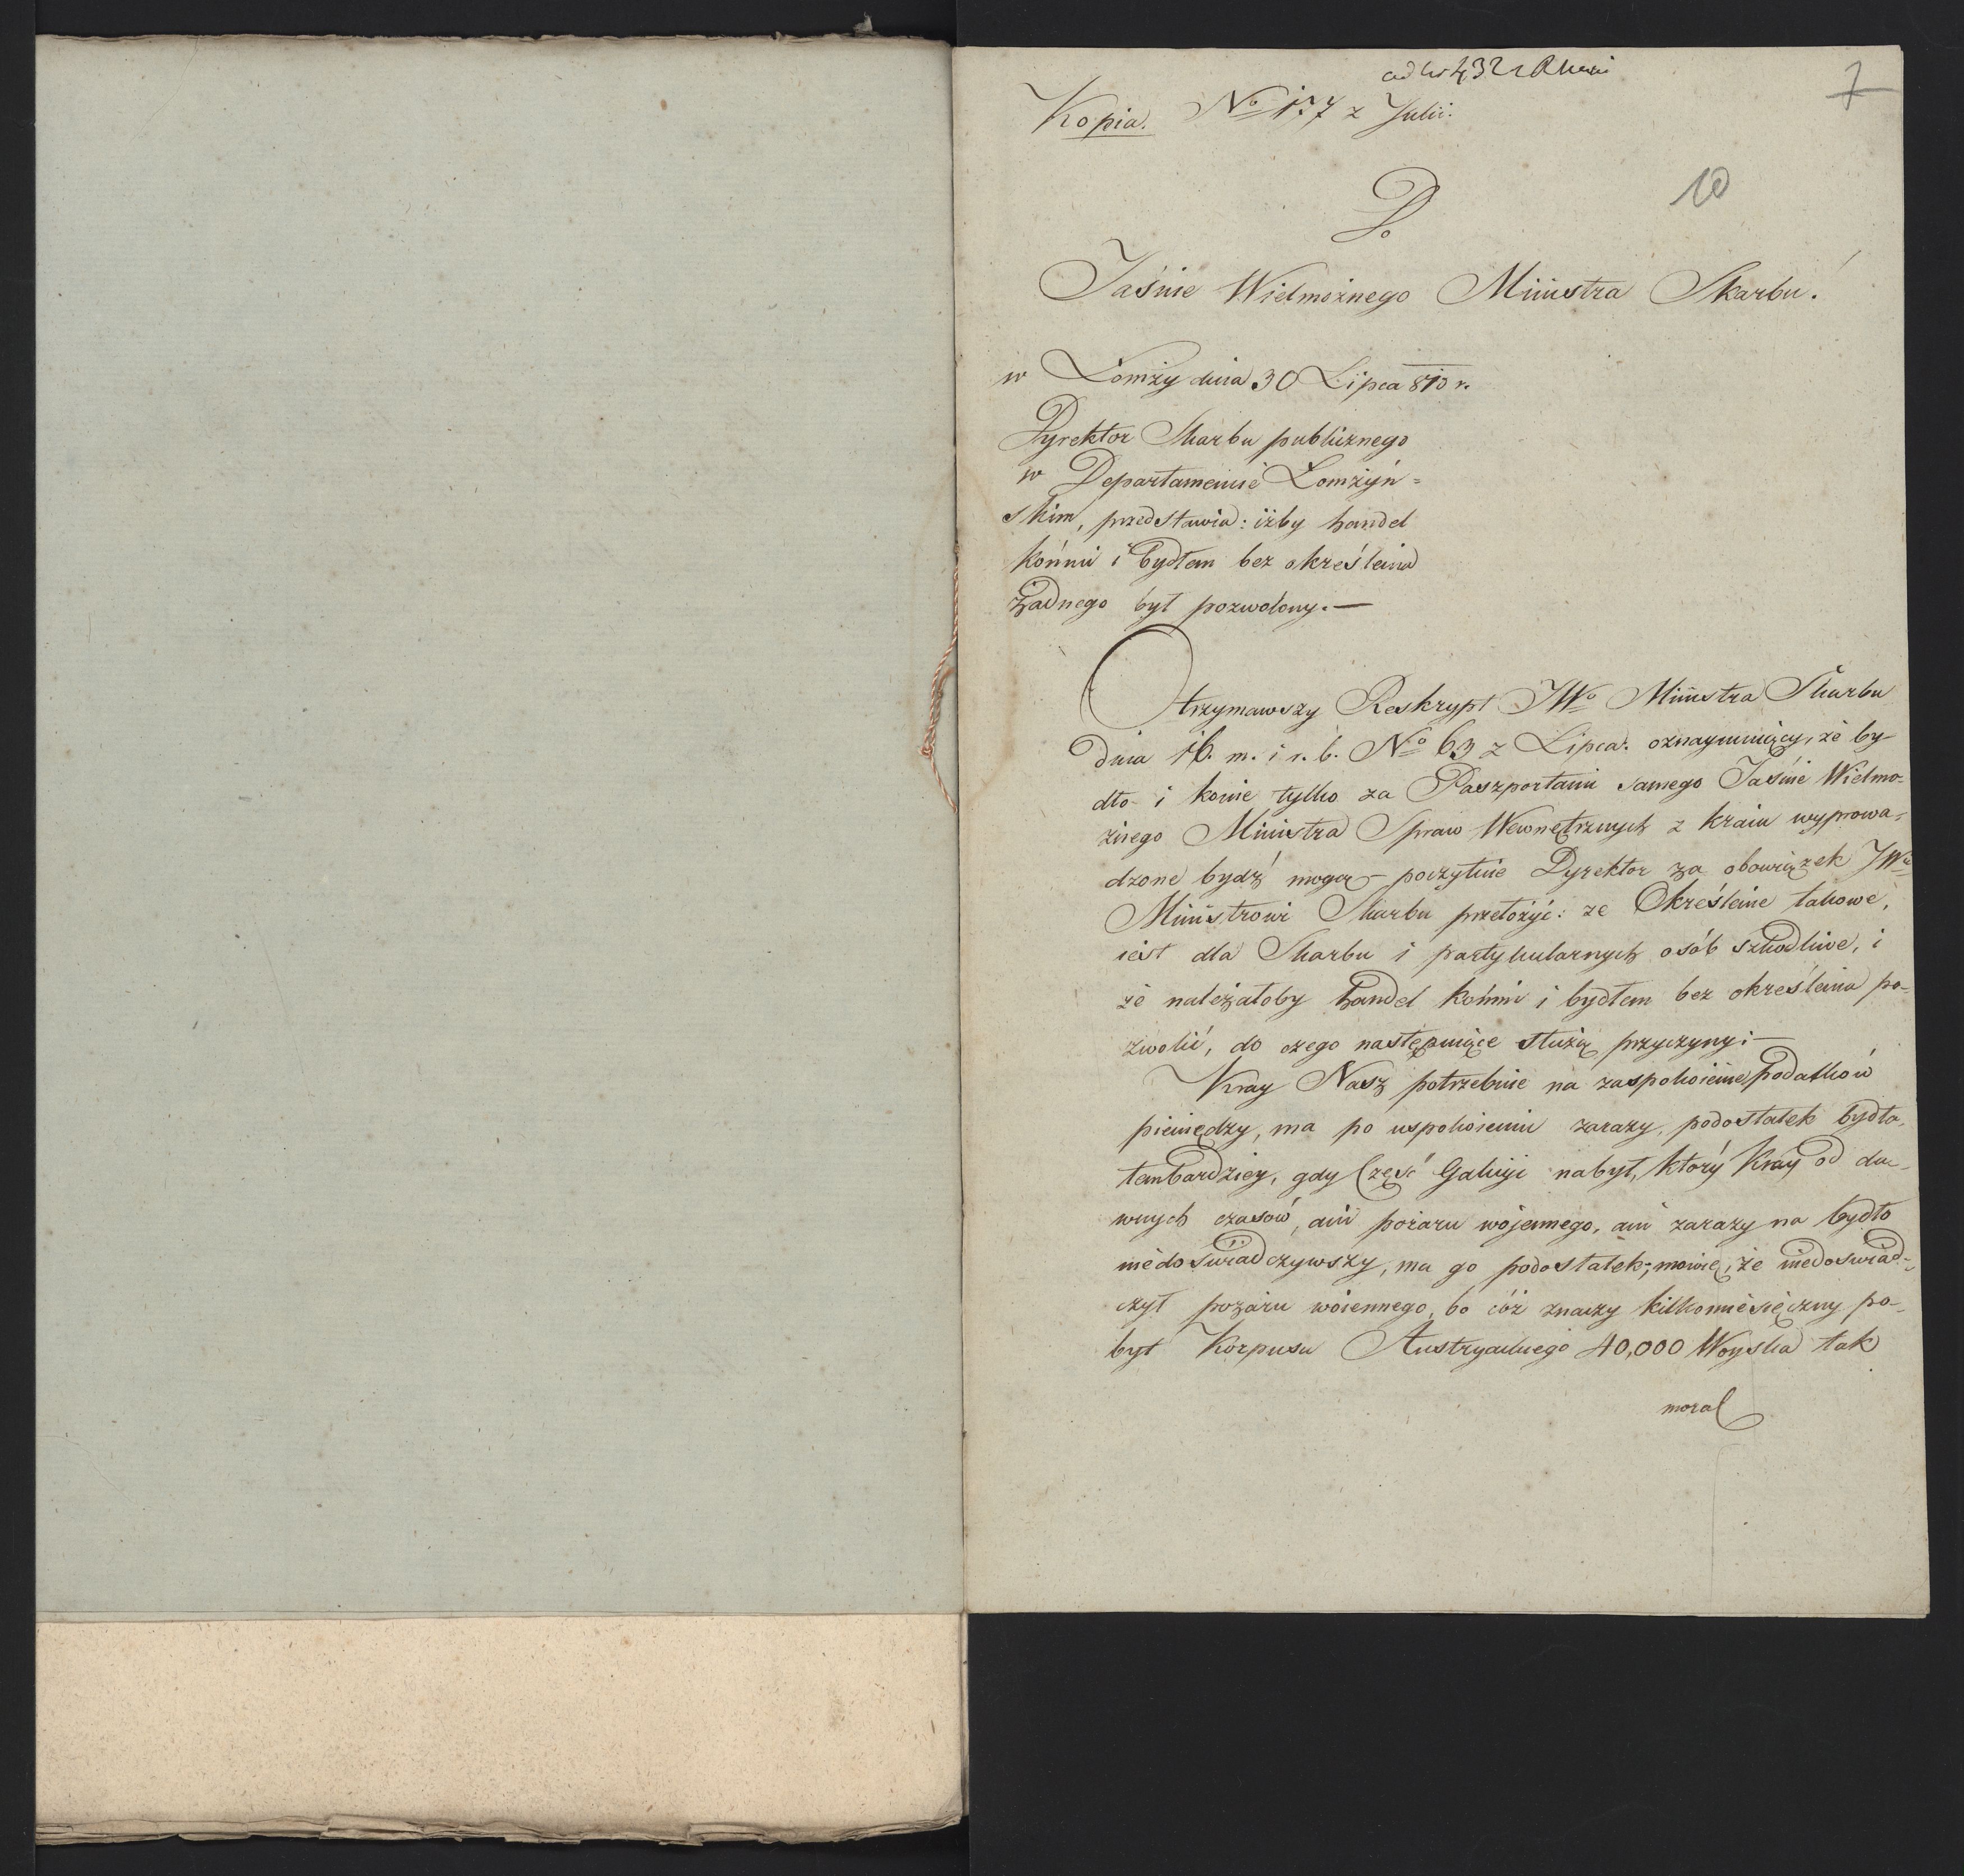 7
Kopia. No 177 z Julii.
10
Do
Jaśnie Wielmożnego Ministra Skarbu.
w Łomży dnia 30 Lipca 810 r.
Dyrektor Skarbu publicznego
w Departamencie Łomżyń=
skim, przedstawia: iżby handel
końmi i bydłem bez określenia
żadnego był pozwolony. —
Otrzymawszy Reskrypt JWo Ministra Skarbu
dnia 16. m. i r. b. No 63 z Lipca. oznaymuiący, że by-
dło i konie tylko za Paszportami samego Jaśnie Wielmo-
żnego Ministra Spraw Wewnętrznych z kraiu wyprowa-
dzone bydź mogą – poczytuie Dyrektor za obowiązek JWu
Ministrowi Skarbu przełożyć: że Określenie takowe,
iest dla Skarbu i partykularnych osób szkodliwe, i
że należałoby handel końmi i bydłem bez określenia po-
zwolić, do czego następuiące służą przyczyny: —
Kray Nasz potrzebuie na zaspokoienie podatków
pieniędzy, ma po uspokoieniu zarazy, podostatek bydła,
tembardziey, gdy Część Galicyi nabył, który Kray od da-
wnych czasów, ani pożaru wojennego, ani zarazy na bydło
niedoświadczywszy, ma go podostatek; mowię, że niedoświad-
czył pożaru woiennego, bo cóż znaczy kilkomiesięczny po-
byt Korpusu Austryackiego 40,000 Woyska tak
moral